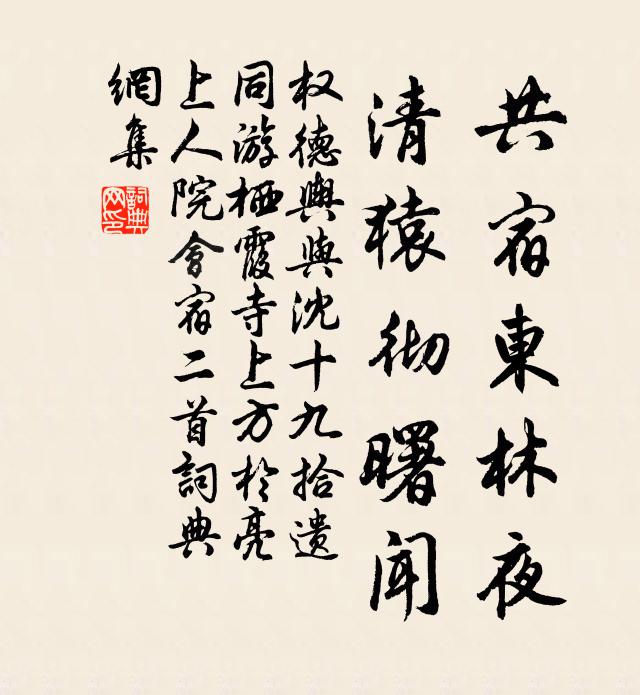 共宿東林夜
清猿彻曙聞
权德輿與沈十九拾遗
同游栖霞寺上方於亮
上人院會宿二首詞典
網集
詞典
网印